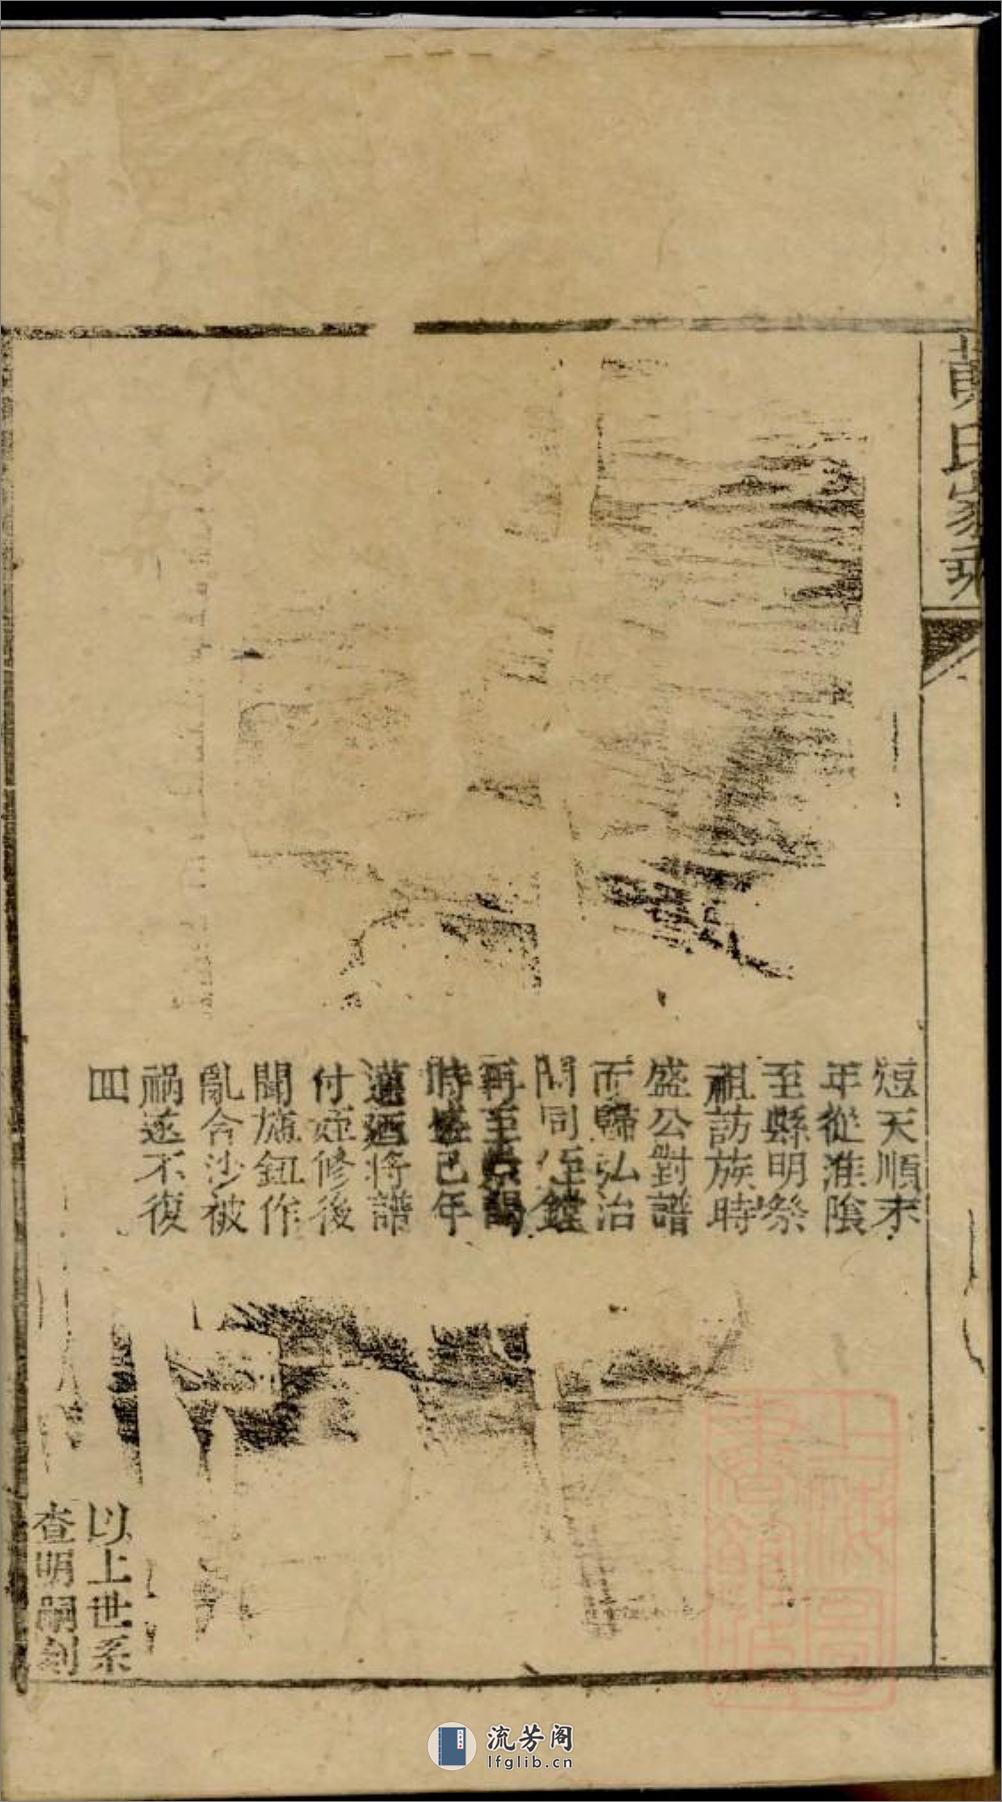 氏家乘
天順末
年從淮陰
至縣明祭
祖訪族時
盛公對譜
而歸弘治
間同侄鏜
再至京
時盛已年
邁迺將譜
付侄修後
聞施鈕作
亂合沙被
禍遂不復
四
以上世系
查明嗣刻
上海圖書館藏
流芳阁
lfglib.cn